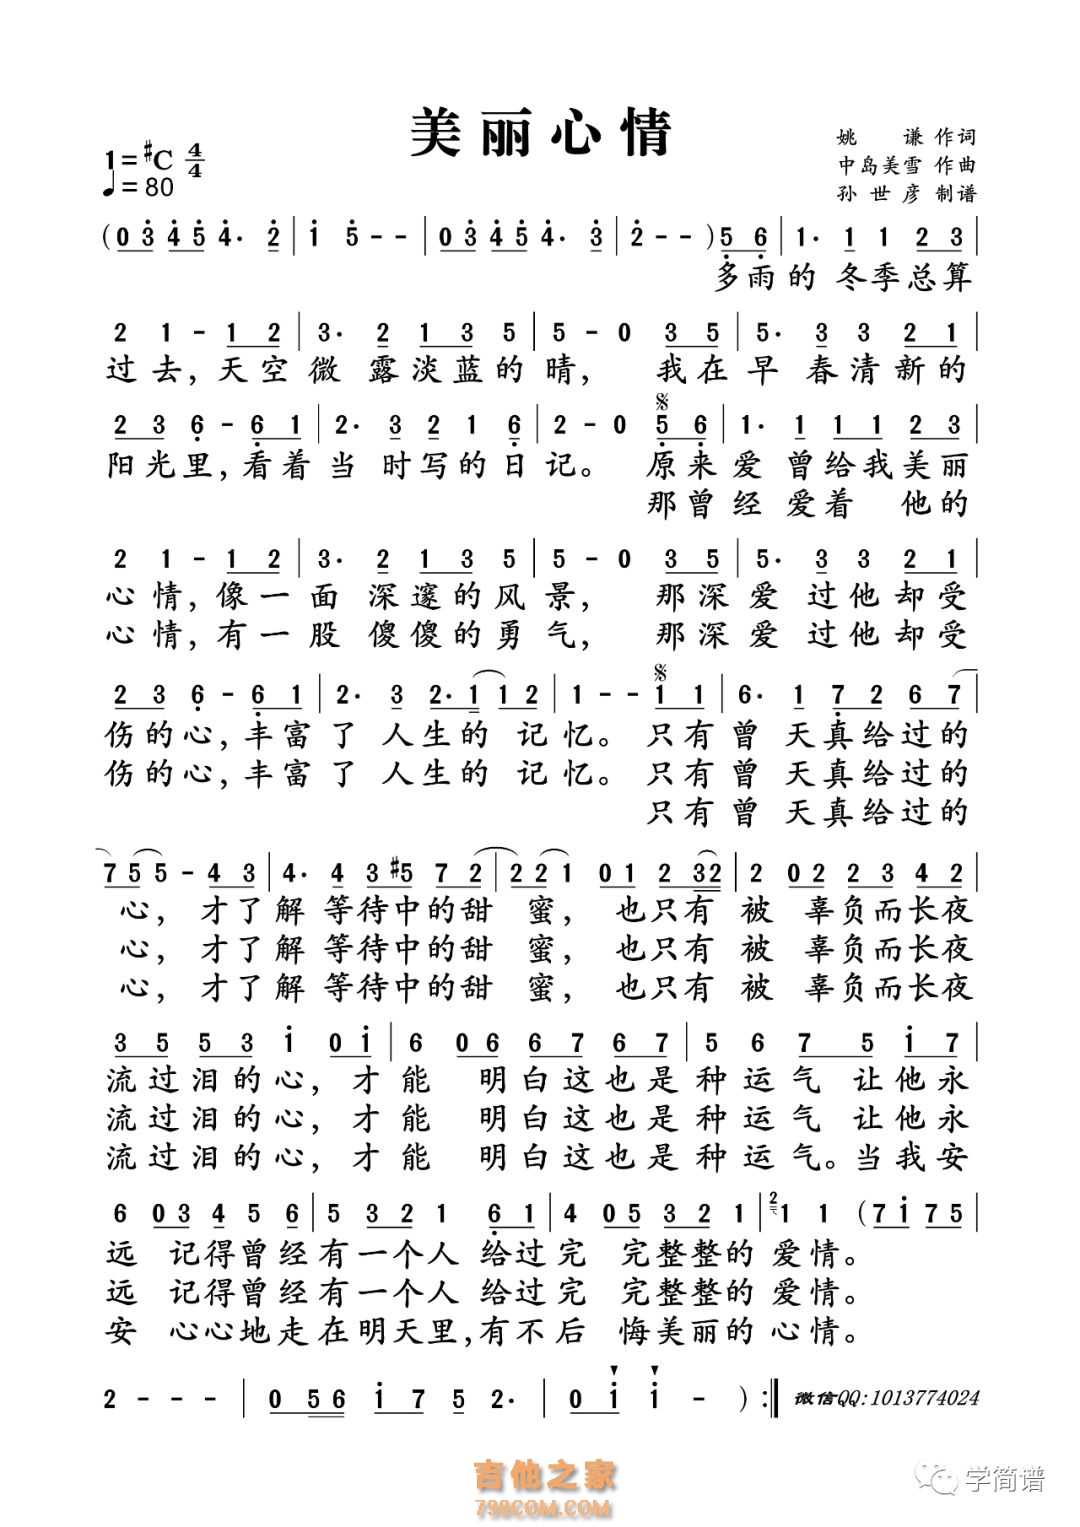 美丽心情
1=#C 4/4
♩=80
姚 谦 作词
中岛美雪 作曲
孙世彦 制谱
(0 3 4 5 4· 2 | 1 5 - - | 0 3 4 5 4· 3 | 2 - - ) 5 6 | 1· 1 1 2 3 |
多雨的 冬季总算
2 1 - 1 2 | 3· 2 1 3 5 | 5 - 0 3 5 | 5· 3 3 2 1 |
过去,天空微 露淡蓝的晴, 我在早 春清新的
2 3 6 - 6 1 | 2· 3 2 1 6 | 2 - 0 5 6 | 1· 1 1 1 2 3 |
阳光里,看着当 时写的日记。 原来爱 曾给我美丽
那曾经 爱着 他的
2 1 - 1 2 | 3· 2 1 3 5 | 5 - 0 3 5 | 5· 3 3 2 1 |
心情,像一面 深邃的风景, 那深爱 过他却受
心情,有一股 傻傻的勇气, 那深爱 过他却受
2 3 6 - 6 1 | 2· 3 2· 1 1 2 | 1 - - 1 1 | 6· 1 7 2 6 7 |
伤的心,丰富了 人生的 记忆。 只有曾 天真给过的
伤的心,丰富了 人生的 记忆。 只有曾 天真给过的
只有曾 天真给过的
7 5 5 - 4 3 | 4· 4 3 #5 7 2 | 2 2 1 0 1 2 3 2 | 2 0 2 2 3 4 2 |
心, 才了解 等待中的甜 蜜, 也只有 被 辜负而长夜
心, 才了解 等待中的甜 蜜, 也只有 被 辜负而长夜
心, 才了解 等待中的甜 蜜, 也只有 被 辜负而长夜
3 5 5 3 1 0 1 | 6 0 6 6 7 6 7 | 5 6 7 5 1 7 |
流过泪的心, 才能 明白这也是种运气 让他永
流过泪的心, 才能 明白这也是种运气 让他永
流过泪的心, 才能 明白这也是种运气。当我安
6 0 3 4 5 6 | 5 3 2 1 6 1 | 4 0 5 3 2 1 | 2 1 1 (7 1 7 5 |
远 记得曾经有一个人 给过完 完整整的 爱情。
远 记得曾经有一个人 给过完 完整整的 爱情。
安 心心地走在明天里,有不后 悔美丽的 心情。
2 - - - | 0 5 6 1 7 5 2· | 0 1 1 - ) :‖ 微信QQ:1013774024
吉他之家
798COM.COM
学简谱